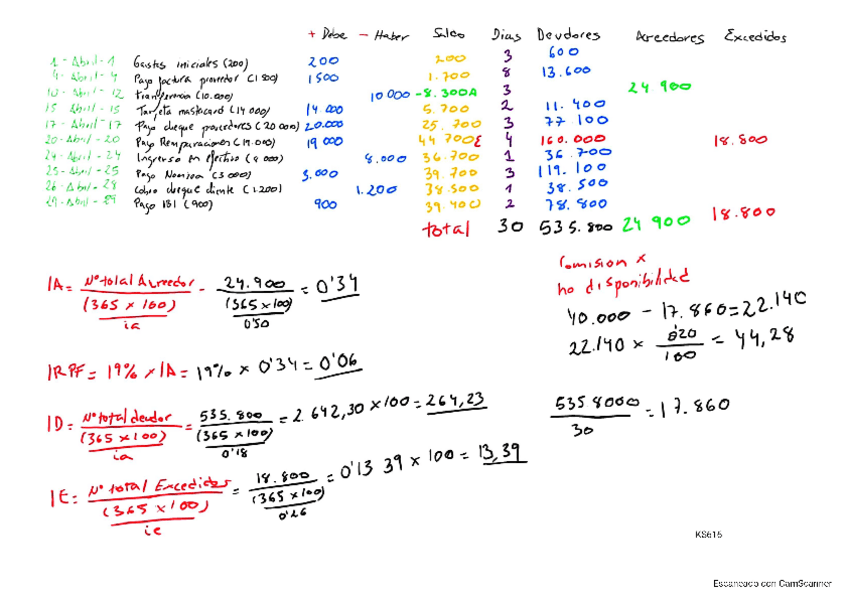 + Debe - Haber Saldo Dias Deudores Acreedores Excedidos
1 - Abril - 1 Gastos iniciales (200) 200 200 3 600
4 - Abril - 4 Pago factura proveedor (1500) 1500 1.700 8 13.600
10 - Abril - 12 transferencia (10.000) 10000 -8.300A 3 24 900
15 - Abril - 15 Tarjeta mastercard (14 000) 14.000 5.700 2 11.400
17 - Abril - 17 Pago cheque proveedores (20 000) 20.000 25.700 3 77 100
20 - Abril - 20 Pago Remparaciones (19.000) 19 000 44 700E 4 160.000 18.800
24 - Abril - 24 Ingreso en efectivo (8 000) 8.000 36.700 1 36.700
25 - Abril - 25 Pago Nomina (3 000) 3.000 39.700 3 119.100
26 - Abril - 28 Cobro cheque cliente (1.200) 1.200 38.500 1 38.500
29 - Abril - 29 Pago IBI (900) 900 39.400 2 78.800
total 30 535.800 24 900 18.800
IA = Nº total Acreedor - 24.900 = 0'34
(365 x 100) (365 x 100)
ia 0'50
Comision x
no disponibilidad
40.000 - 17.860 = 22.140
22.140 x 0'20 = 44,28
100
IRPF = 19% x IA = 19% x 0'34 = 0'06
ID = Nº total deudor = 535.800 = 2.642,30 x 100 = 264,23
(365 x 100) (365 x 100)
ia 0'18
535 8000 = 17.860
30
IE = Nº total Excedidos = 18.800 = 0'13 39 x 100 = 13,39
(365 x 100) (365 x 100)
ie 0'26
KS615
Escaneado con CamScanner